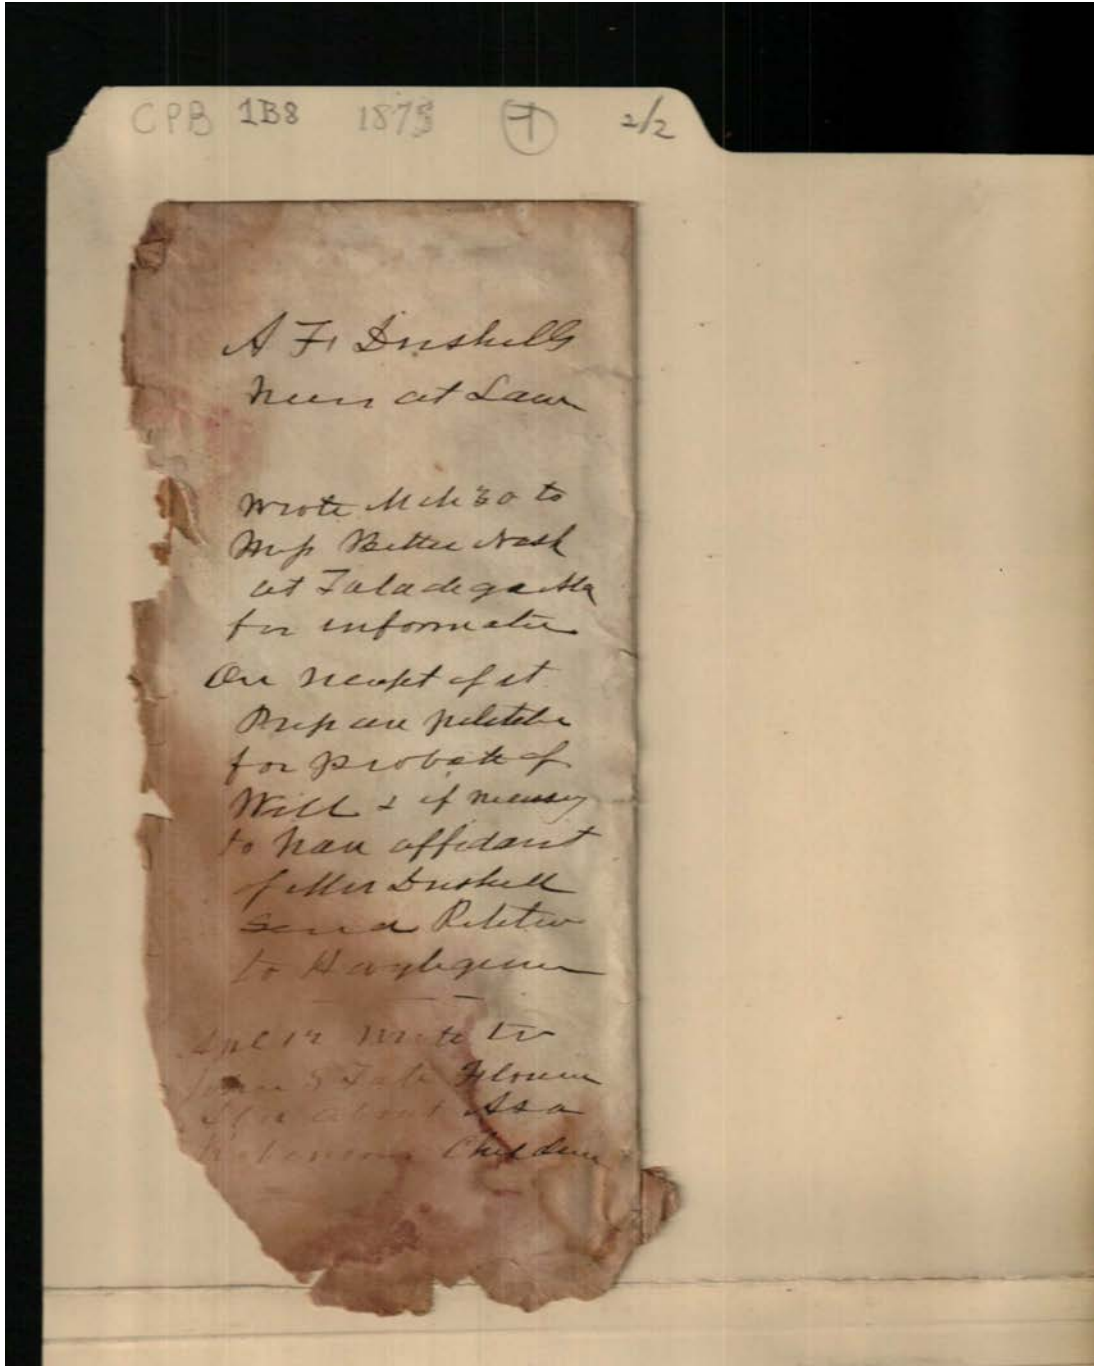 CPB 1B8 1873 1 2/2
A F Driskells
heirs at Law
Wrote Mch 30 to
Miss Bettie Nash
at Taladega Ala
for information
On receipt of it
Prepare petition
for probate of
Will & if necessary
to have affidavit
of Mrs Driskell
send Petition
to
Apl 12 Wrote to
John S Tate Florence
Ala about Asa
Robinsons Children